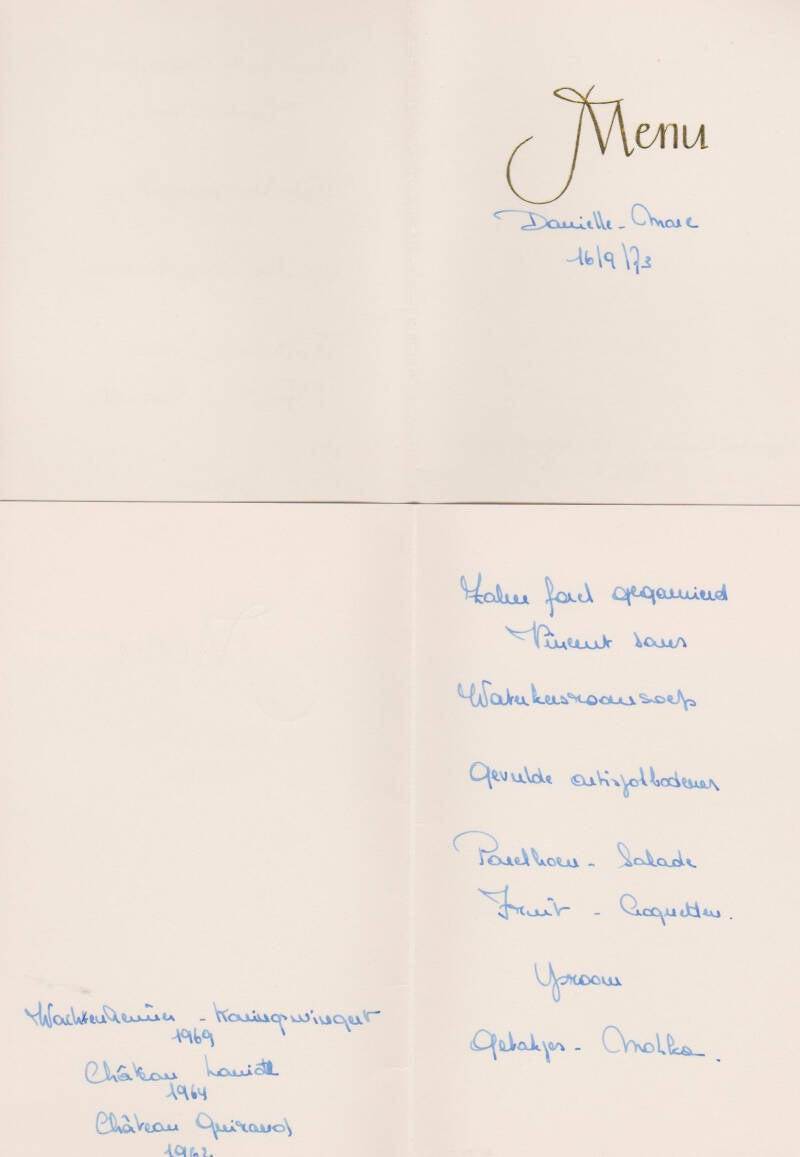 Menu
Danielle - Marc
16/9/73
Zalm forel gegarneerd
Vincent saus
Waterkersroomsoep
Gevulde artisjokbodems
Parelhoen - Salade
Fruit - Croquetten.
IJsroom
Gebakjes - Mokka.
Wachenheimer - Koningswingert
1969
Château
1964
Château Guiraud
1962